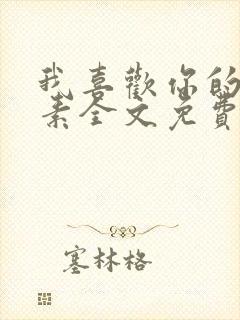 我喜歡你的
素全文免費
塞林格